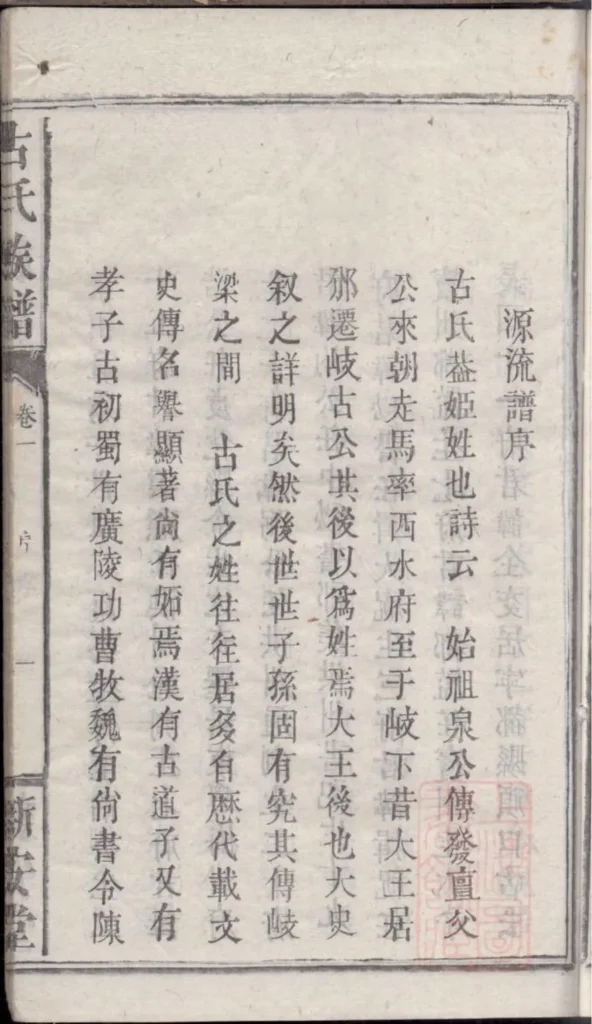 源流譜序
古氏葢姬姓也詩云　始祖泉公傳發亶父
公來朝走馬率西水府至于岐下昔大王居
邠遷岐古公其後以爲姓焉大王後也大史
叙之詳明矣然後世世子孫固有究其傳岐
梁之間　古氏之姓往往居多自歷代載文
史傳名譽顯著尙有妬焉漢有古道子又有
孝子古初蜀有廣陵功曹牧魏有尙書令陳
古氏族譜
卷一
序
一
新安堂